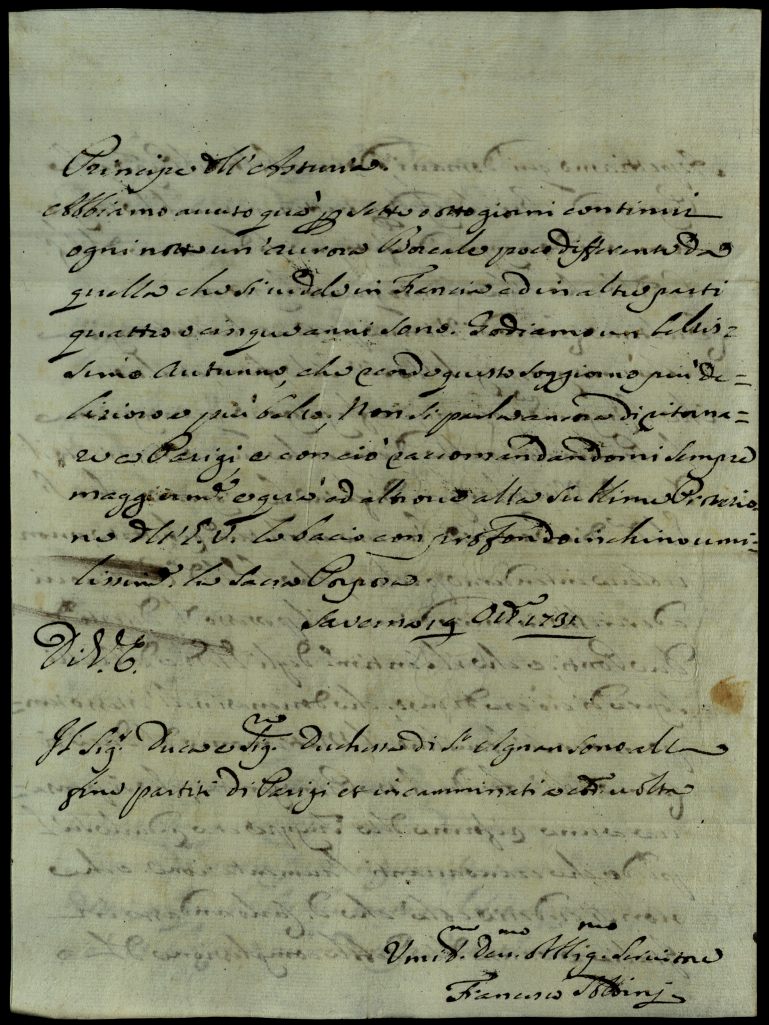 Principe dell'Asturia.
Abbiamo avuto quà per sette o otto giorni continui
ogni notte un'Aurora Boreale poco differente da
quella che si vidde in Francia ed in altre parti
quattro o cinque anni sono. Godiamo un bellis=
simo Autunno, che rende questo soggiorno più de=
lizioso e più bello; Non si parla ancora di ritorna=
re a Parigi, e con ciò raccomandandomi sempre
maggiorm.te e quà ed altrove alla sublime Protezio
ne dell'E.V. le bacio con profondo inchino umi=
lissim.te la Sacra Porpora
Saverna 19 Ott.re 1731
Di V.E.
Il Sig.r Duca e Sig.ra Duchessa di S.t Agnan sono alla
fine partiti di Parigi et incamminati a co.ta volta
Umil.mo Dev.mo Obblig.mo Servitore
Francesco